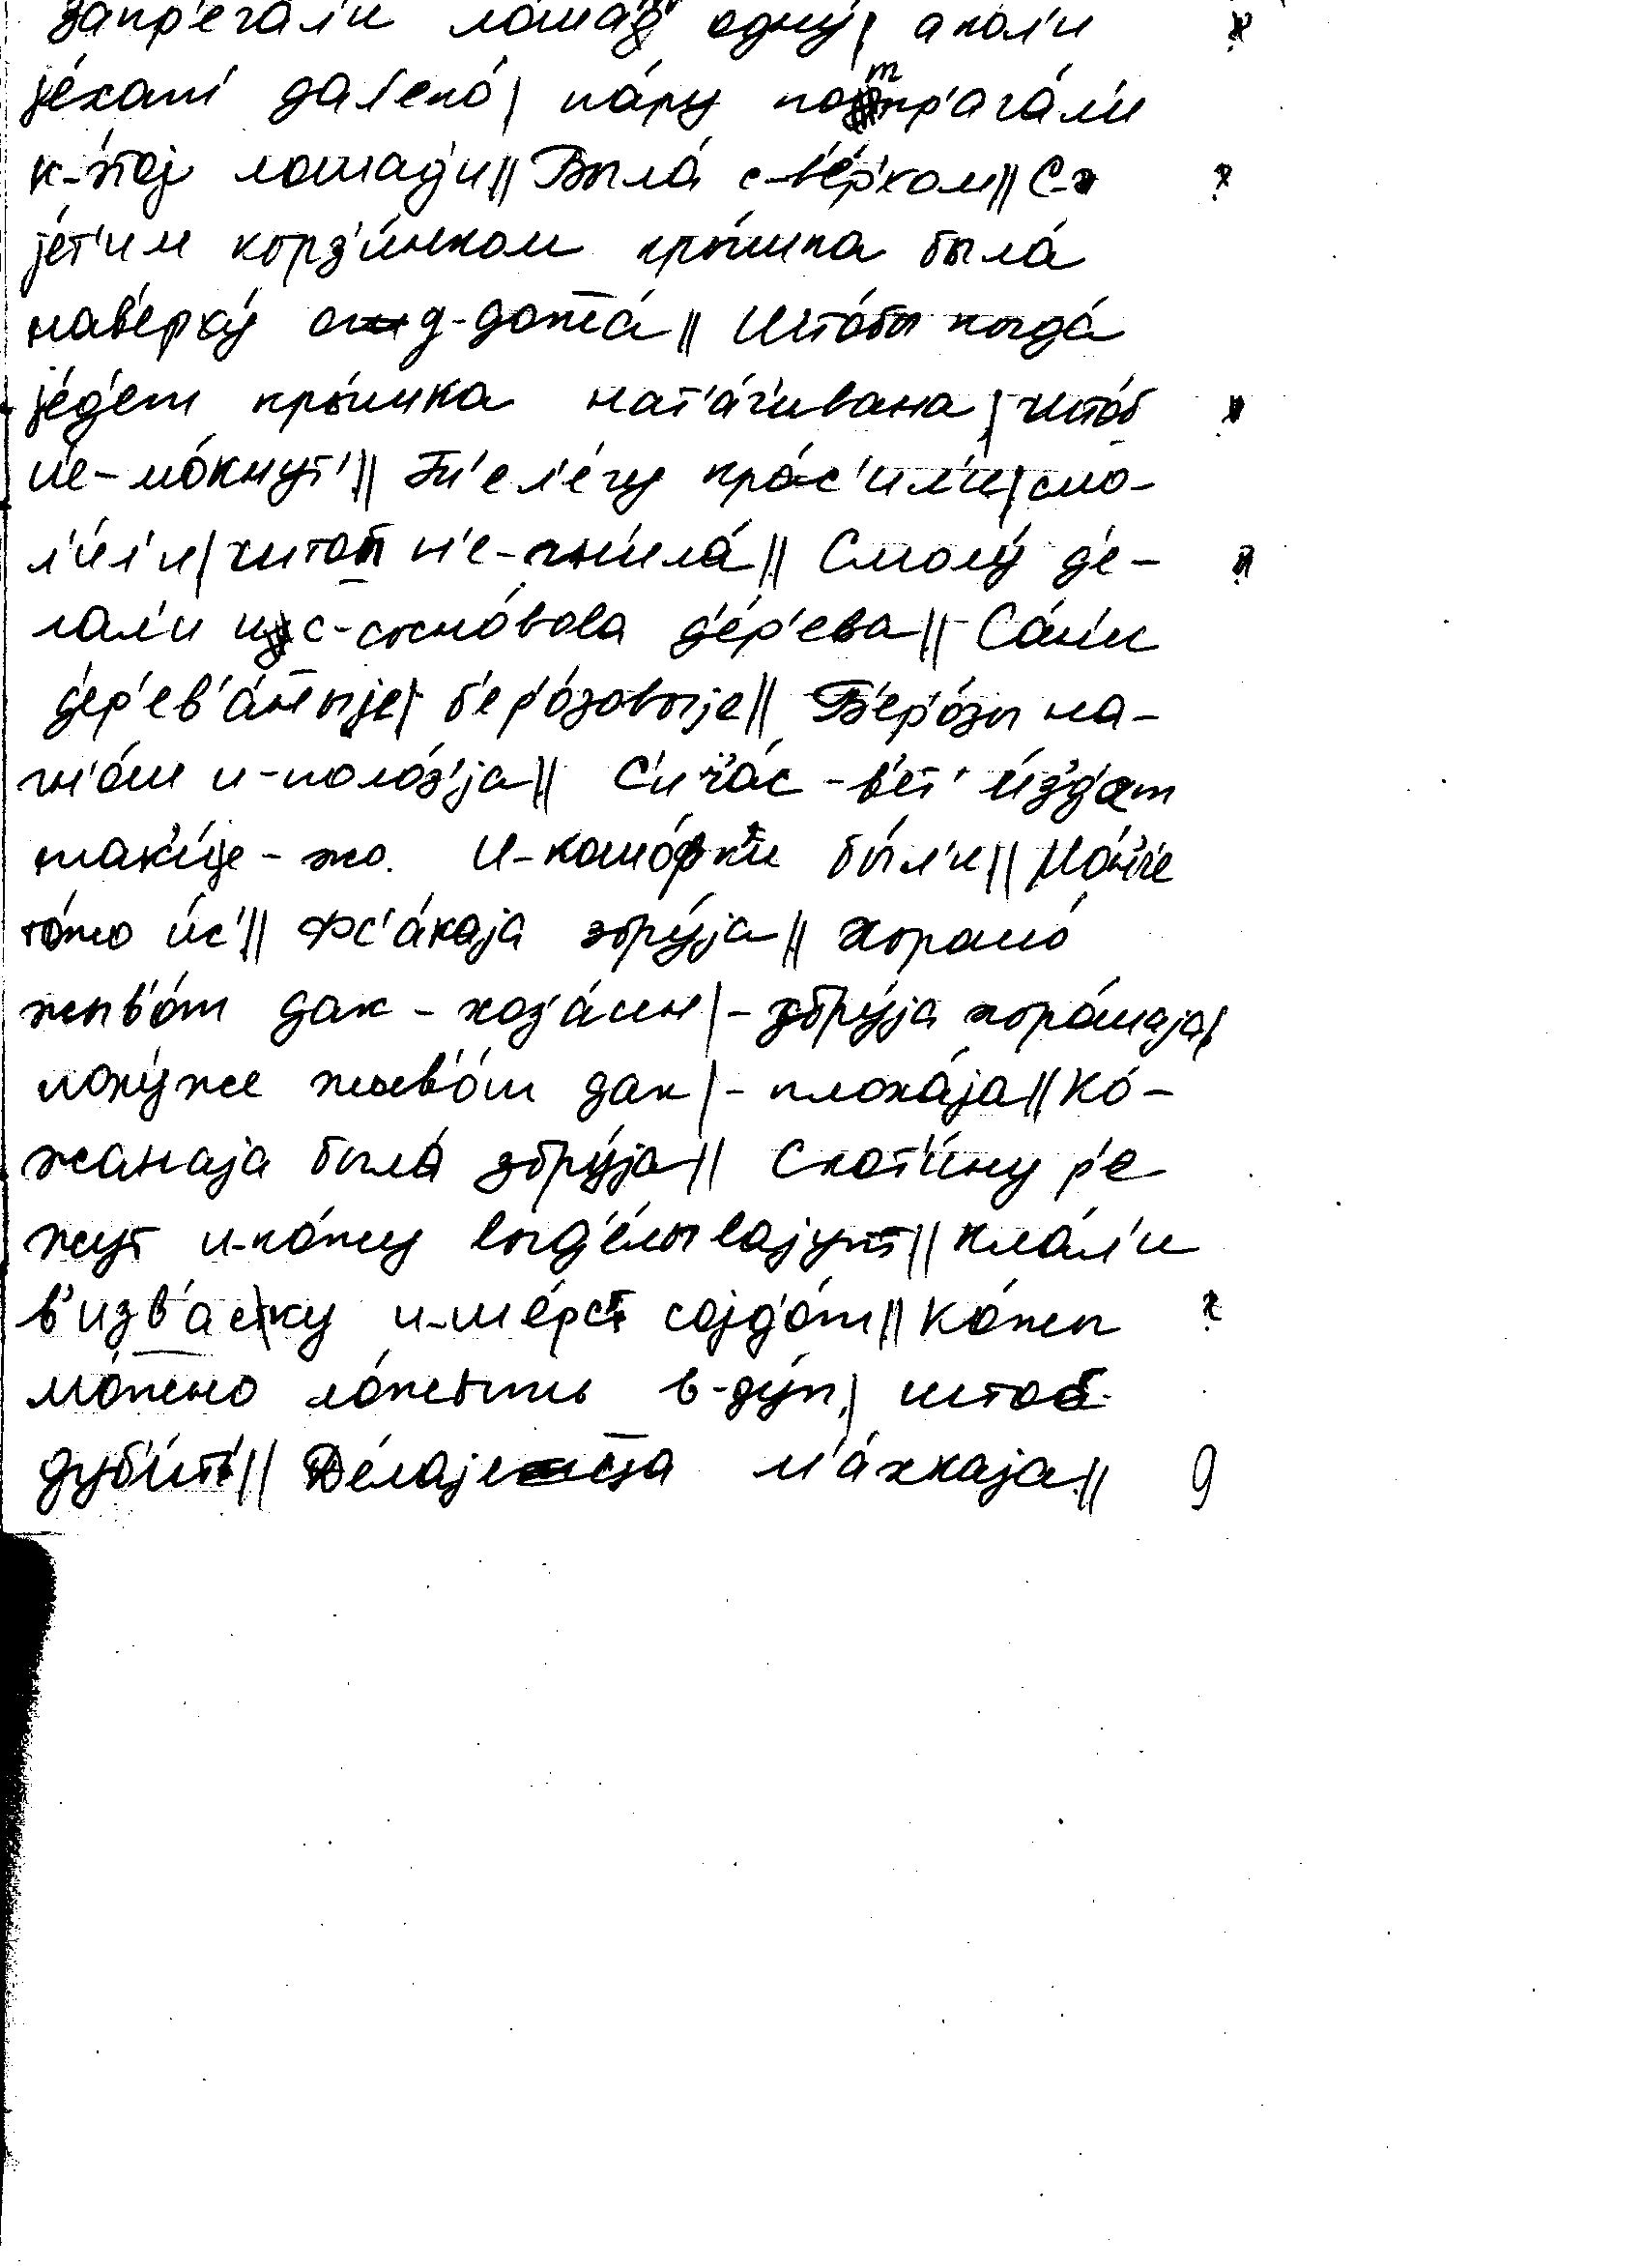 запр'ега́л'и лошад' одну́| а кол'и
jе́хат' дал'еко́| па́ру потпр'ага́л'и
к-э́тоj лошад'и|| Была́ с-в'е́рхом|| С-
jе́т'им корз'и́нком кры́шка была́
нав'ерху́ од-дожжа́|| Што́бы когда́
jе́д'ет кры́шка нат'а́г'ивана| штоб
н'е-мо́кнут'|| Т'ел'е́гу кра́с'ил'и| смо-
л'и́л'и| штоб н'е-гн'ила́|| Смолу́ д'е-
лал'и ис-сосно́вова д'е́р'ева|| Са́н'и
д'ер'ев'а́ныjе| б'ер'о́зовыjе|| Б'ер'о́зы на-
гн'о́ш и-поло́з'jа|| С'ича́с-в'ет' и́з'д'ат
так'и́jе-жо. И-кошо́вк'и бы́л'и|| Но́н'че
то́жо йе́с'|| Фс'а́каjа збру́jа|| Хорошо́
жыв'о́т дак-хоз'а́ин|-збру́jа хоро́шаjа|
поху́же жыв'о́т дак|-плоха́jа|| Ко́-
жанаjа была́ збру́jа|| Скот'и́ну р'е
жут и-ко́жу выд'е́лываjут|| Кла́л'и
в'изв'а́стку и-ше́рст' соjд'о́т|| Ко́жы
мо́жно ло́жыть в-ду́п,| штоб
дуб'и́т'|| Д'е́лаjеца м'а́хкаjа|| 9